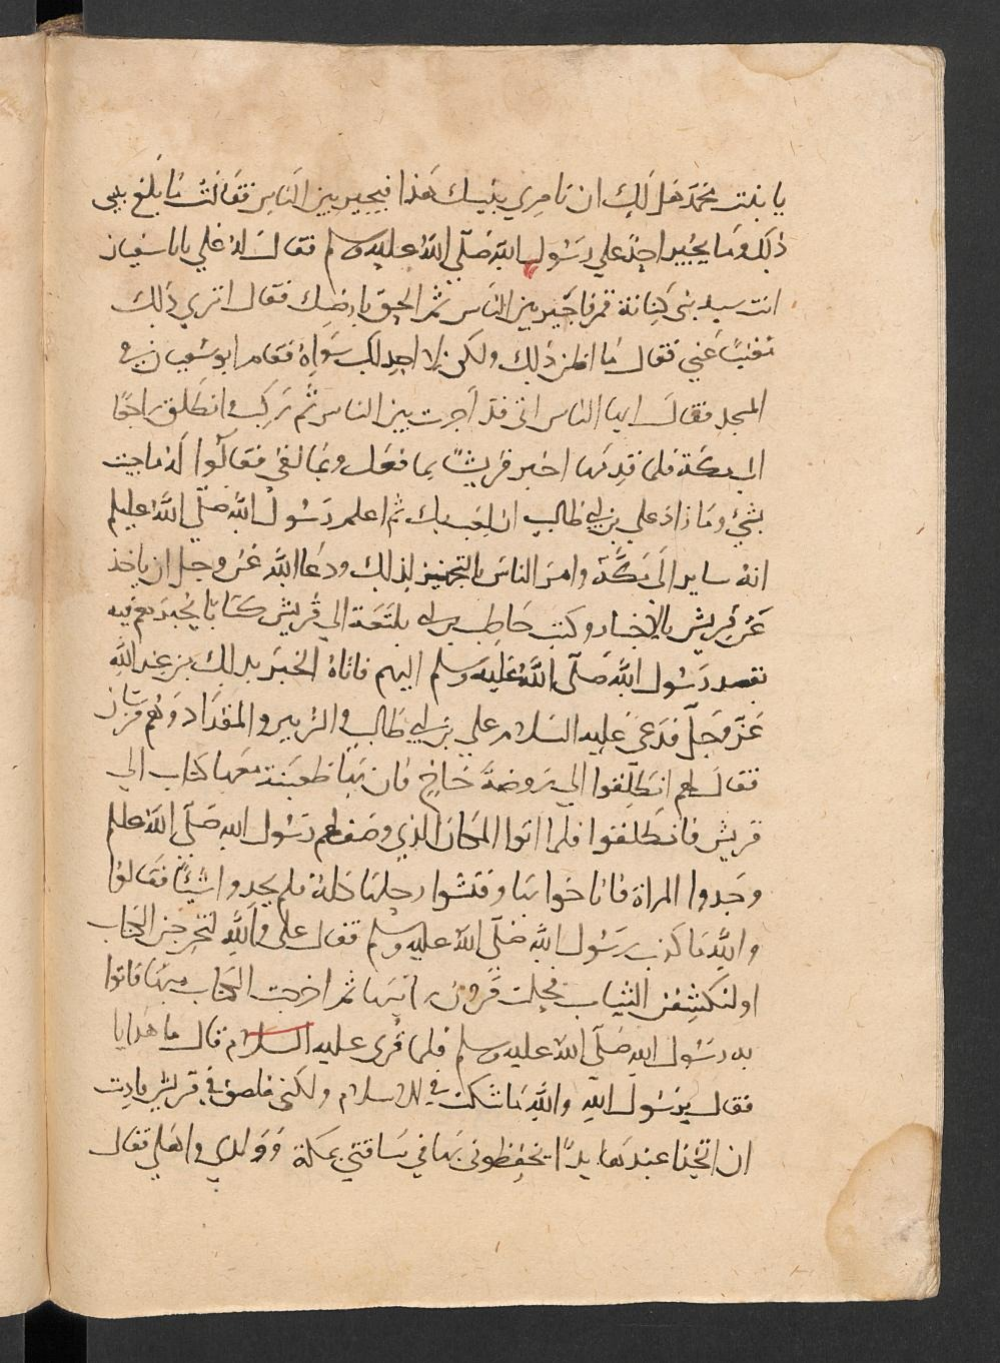 يا بنت محمد هل لك ان تامري بنيك هذا فيجير بين الناس فقالت ما بلغ بني
ذلك وما يجير احد علي رسول الله صلى الله عليه وسلم فقال له علي يابا سفيان
انت سيد بني كنانة قم فاجير بين الناس ثم الحق بارضك فقال اتري ذلك
عني فقال ما اظن ذلك ولكن لا اجد لك سواه فقام ابو سفيان في
المسجد فقال ايها الناس اني قد اجرت بين الناس ثم ركب وانطلق راجعا
الى مكة فلما قدمها اخبر قريشا بما فعل وبما لقي فقالوا له ما جيت
بشئ وما زاد علي بن ابي طالب ان لعب بك ثم اعلم رسول الله صلى الله عليه وسلم
انه ساير الى مكة وامر الناس بالتجهيز لذلك ودعا الله عز وجل ان ياخذ
عن قريش بالاخبار وكتب حاطب بن ابي بلتعة الي قريش كتابا يخبرهم فيه
بقصد رسول الله صلى الله عليه وسلم اليهم فاتاه الخبر بذلك من عند الله
عز وجل فدعى عليه السلام علي بن ابي طالب والزبير والمقداد وهم فرسان
فقال لهم انطلقوا الي روضة خاخ فان بها ظعينة معها كتاب الي
قريش فانطلقوا فلما اتوا المكان الذي وصف لهم رسول الله صلى الله عليه وسلم
وجدوا المراة فاناخوا بها وفتشوا رحلها كله فلم يجدوا شيئا فقالوا
والله ما كذب رسول الله صلى الله عليه وسلم فقال علي والله لتخرجن الكتاب
او لنكشفن الثياب فحلت قرون راسها ثم اخرجت الكتاب منها فاتوا
به رسول الله صلى الله عليه وسلم فلما قرى عليه السلام قال ما هذا يا
فقال يرسول الله والله ما شككت في الاسلام ولكني ملصق في قريش فاردت
ان اتخذ عندهم يدا يحفظوني بها في ساقتي بمكة وولدي واهلي فقال